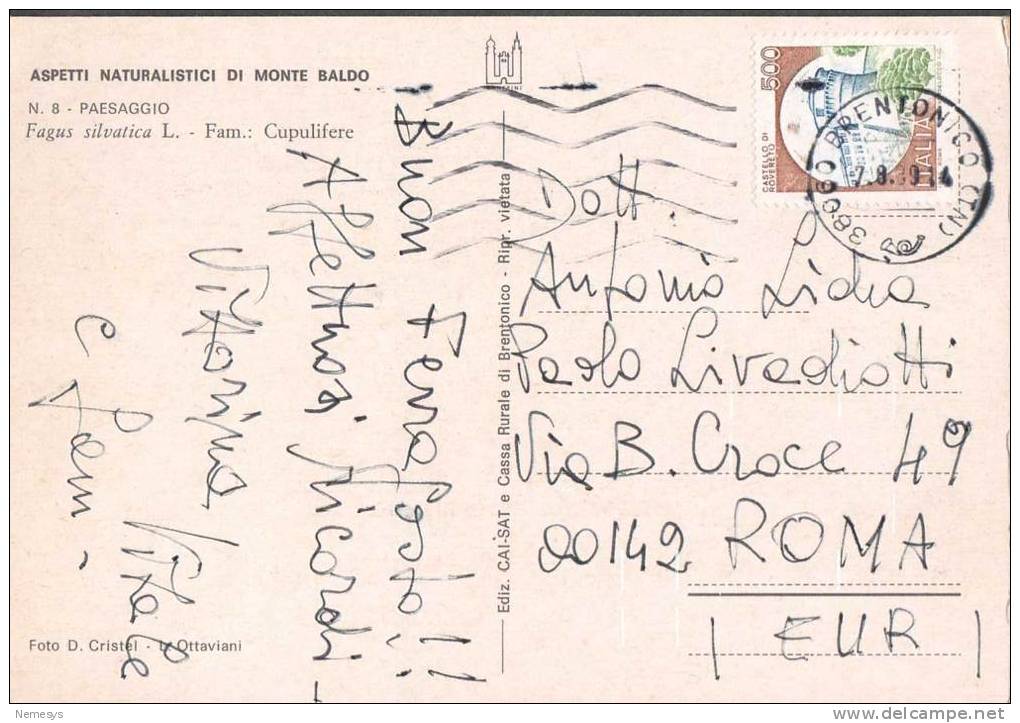 ASPETTI NATURALISTICI DI MONTE BALDO
N. 8 - PAESAGGIO
Fagus silvatica L. - Fam.: Cupulifere
Buon Ferragosto!!
Affettuosi Ricordi -
Vittorina Vitale
e fam -
Foto D. Cristel - L. Ottaviani
Ediz. CAI-SAT e Cassa Rurale di Brentonico - Ripr. vietata
500
CASTELLO DI
ROVERETO
ITALIA
38060 BRENTONICO (TN)
Dott.
Antonio Lidia
Paolo Livadiotti
Via B. Croce 49
00142 ROMA
| EUR |
Nemesys
www.delcampe.net